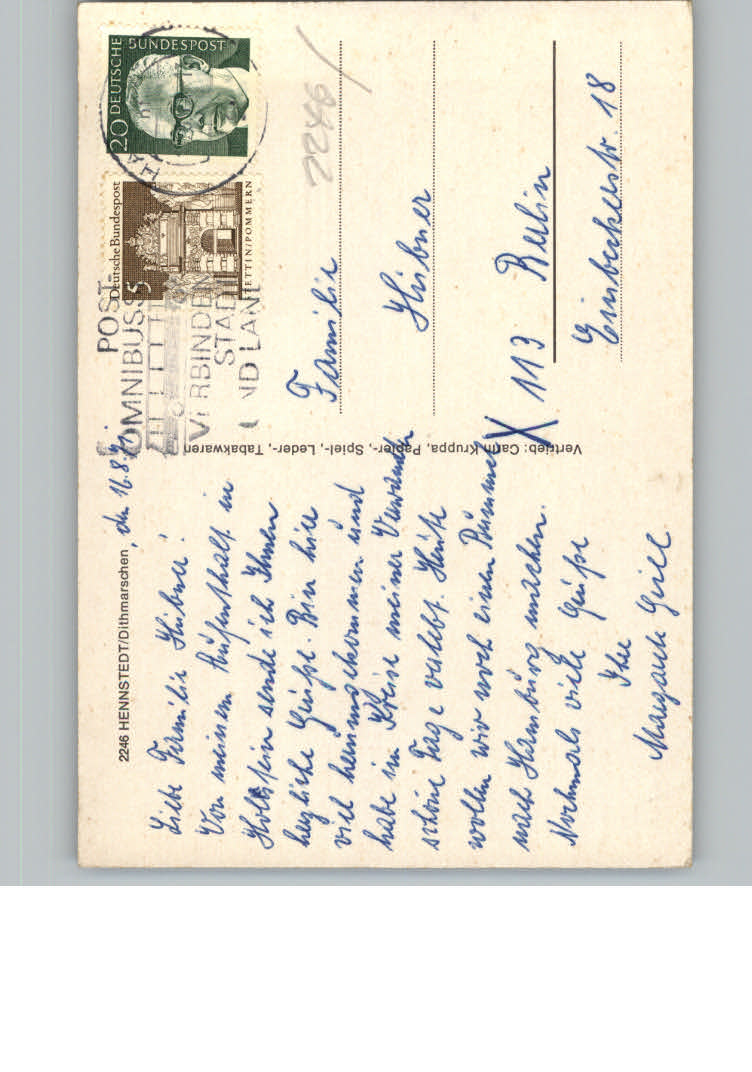 2246 HENNSTEDT/Dithmarschen, den 16.8.71.
Liebe Familie Hübner!
Von meinem Aufenthalt in
Holstein sende ich Ihnen
herzliche Grüße. Bin hier
viel herumgekommen und
habe im Kreise meiner Verwandten
schöne Tage verlebt. Heute
wollen wir noch einen Bummel
nach Hamburg machen.
Nochmals viele Grüße
Ihre
Margarete
Vertrieb: Carin Kruppa, Papier-, Spiel-, Leder-, Tabakwaren
POST-
OMNIBUSSE
VERBINDEN
STADT
UND LAND
Deutsche Bundespost
5
STETTIN/POMMERN
20 DEUTSCHE
BUNDESPOST
2246
Familie
Hübner
X 113 Berlin
Einbeckerstr. 18